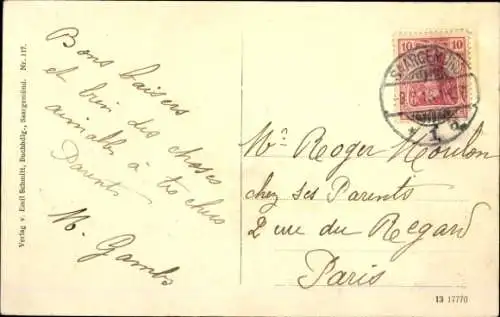 Verlag v. Emil Schmitt, Buchhdlg., Saargemünd. Nr. 117.
Bons baisers
et bien des choses
aimables à tes chers
Parents
M. Gambs
10 10
SAARGEMÜND
Mr Roger Moulon
chez ses Parents
2 rue du Regard
Paris
13 17770